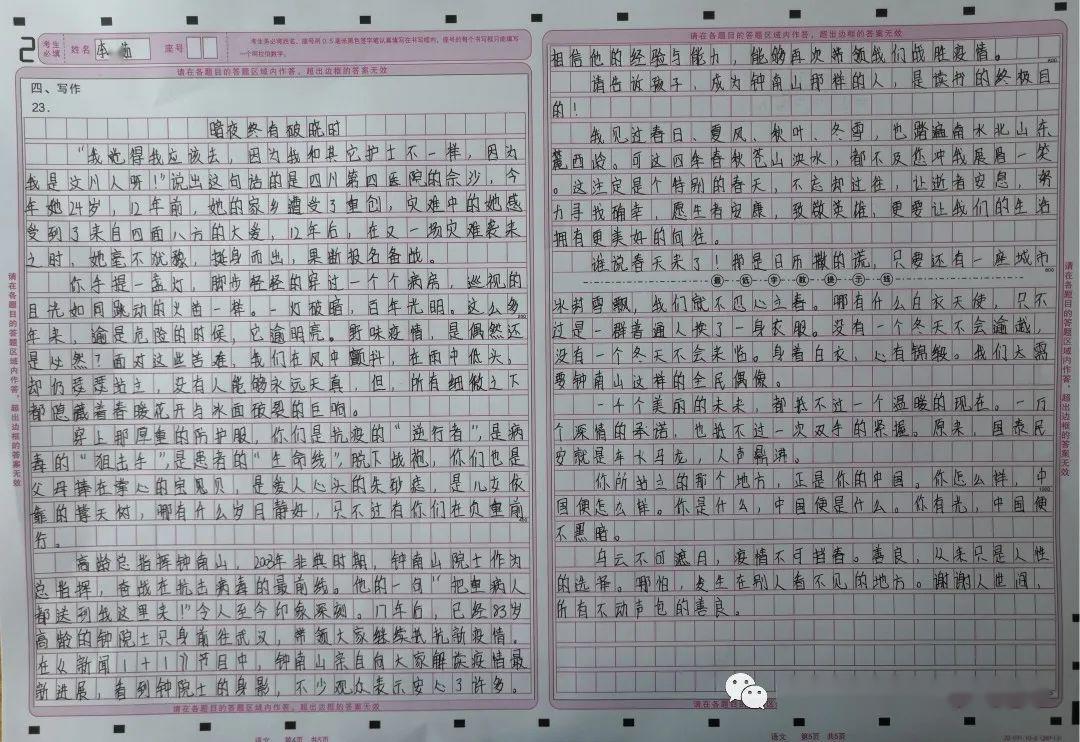 2
考生必填
姓名
座号
考生务必将姓名、座号用0.5毫米黑色签字笔认真填写在书写框内，座号的每个书写框只能填写一个阿拉伯数字。
请在各题目的答题区域内作答，超出边框的答案无效
四、写作
23.
暗夜终有破晓时
“我觉得我应该去，因为我和其它护士不一样，因为
我是汶川人呀！”说出这句话的是四川第四医院的佘沙，今
年她24岁，12年前，她的家乡遭受了重创，灾难中的她感
受到了来自四面八方的大爱，12年后，在又一场灾难袭来
之时，她毫不犹豫，挺身而出，果断报名备战。
你手提一盏灯，脚步轻轻的穿过一个个病房，巡视的
目光如同跳动的火苗一样。一灯破暗，百年光明。这么多
年来，逾是危险的时候，它逾明亮。野味疫情，是偶然还
是必然？面对这些苦难，我们在风中颤抖，在雨中低头，
却仍茎茎站立，没有人能够永远天真，但，所有细微之下
都隐藏着春暖花开与冰面破裂的巨响。
穿上那厚重的防护服，你们是抗疫的“逆行者”，是病
毒的“狙击手”，是患者的“生命线”，脱下战袍，你们也是
父母捧在掌心的宝贝，是爱人心头的朱砂痣，是儿女依
靠的擎天树，哪有什么岁月静好，只不过有你们在负重前
行。
高龄总指挥钟南山，2003年非典时期，钟南山院士作为
总指挥，奋战在抗击病毒的最前线。他的一句“把重病人
都送到我这里来！”令人至今印象深刻。17年后，已经83岁
高龄的钟院士只身前往武汉，带领大家继续抵抗新疫情。
在《新闻1+1》节目中，钟南山亲自向大家解读疫情最
新进展，看到钟院士的身影，不少观众表示安心了许多。
请在各题目的答题区域内作答，超出边框的答案无效
语文 第4页 共5页
请在各题目的答题区域内作答，超出边框的答案无效
相信他的经验与能力，能够再次带领我们战胜疫情。
请告诉孩子，成为钟南山那样的人，是读书的终极目
的！
我见过春日、夏风、秋叶、冬雪，也踏遍南水北山东
麓西岭。可这四季春秋苍山泱水，都不及您冲我展眉一笑
。这注定是个特别的春天，不忘却过往，让逝者安息，努
力寻找确幸，愿生者安康，致敬英雄，更要让我们的生活
拥有更美好的向往。
谁说春天来了！那是日历撒的谎，只要还有一座城市
最低字数提示线
冰封雪飘，我们就不忍心立春。哪有什么白衣天使，只不
过是一群普通人换了一身衣服。没有一个冬天不会逾越，
没有一个冬天不会来临。身着白衣，心有锦缎。我们太需
要钟南山这样的全民偶像。
一千个美丽的未来，都抵不过一个温暖的现在。一万
个深情的承诺，也抵不过一次双手的紧握。原来，国泰民
安就是车水马龙，人声鼎沸。
你所站立的那个地方，正是你的中国。你怎么样，中
国便怎么样。你是什么，中国便是什么。你有光，中国便
不黑暗。
乌云不可遮月，疫情不可挡春。善良，从来只是人性
的选择。哪怕，发生在别人看不见的地方。谢谢人世间，
所有不动声色的善良。
请在各题目的答题区
语文 第5页 共5页
请在各题目的答题区域内作答，超出边框的答案无效
请在各题目的答题区域内作答，超出边框的答案无效